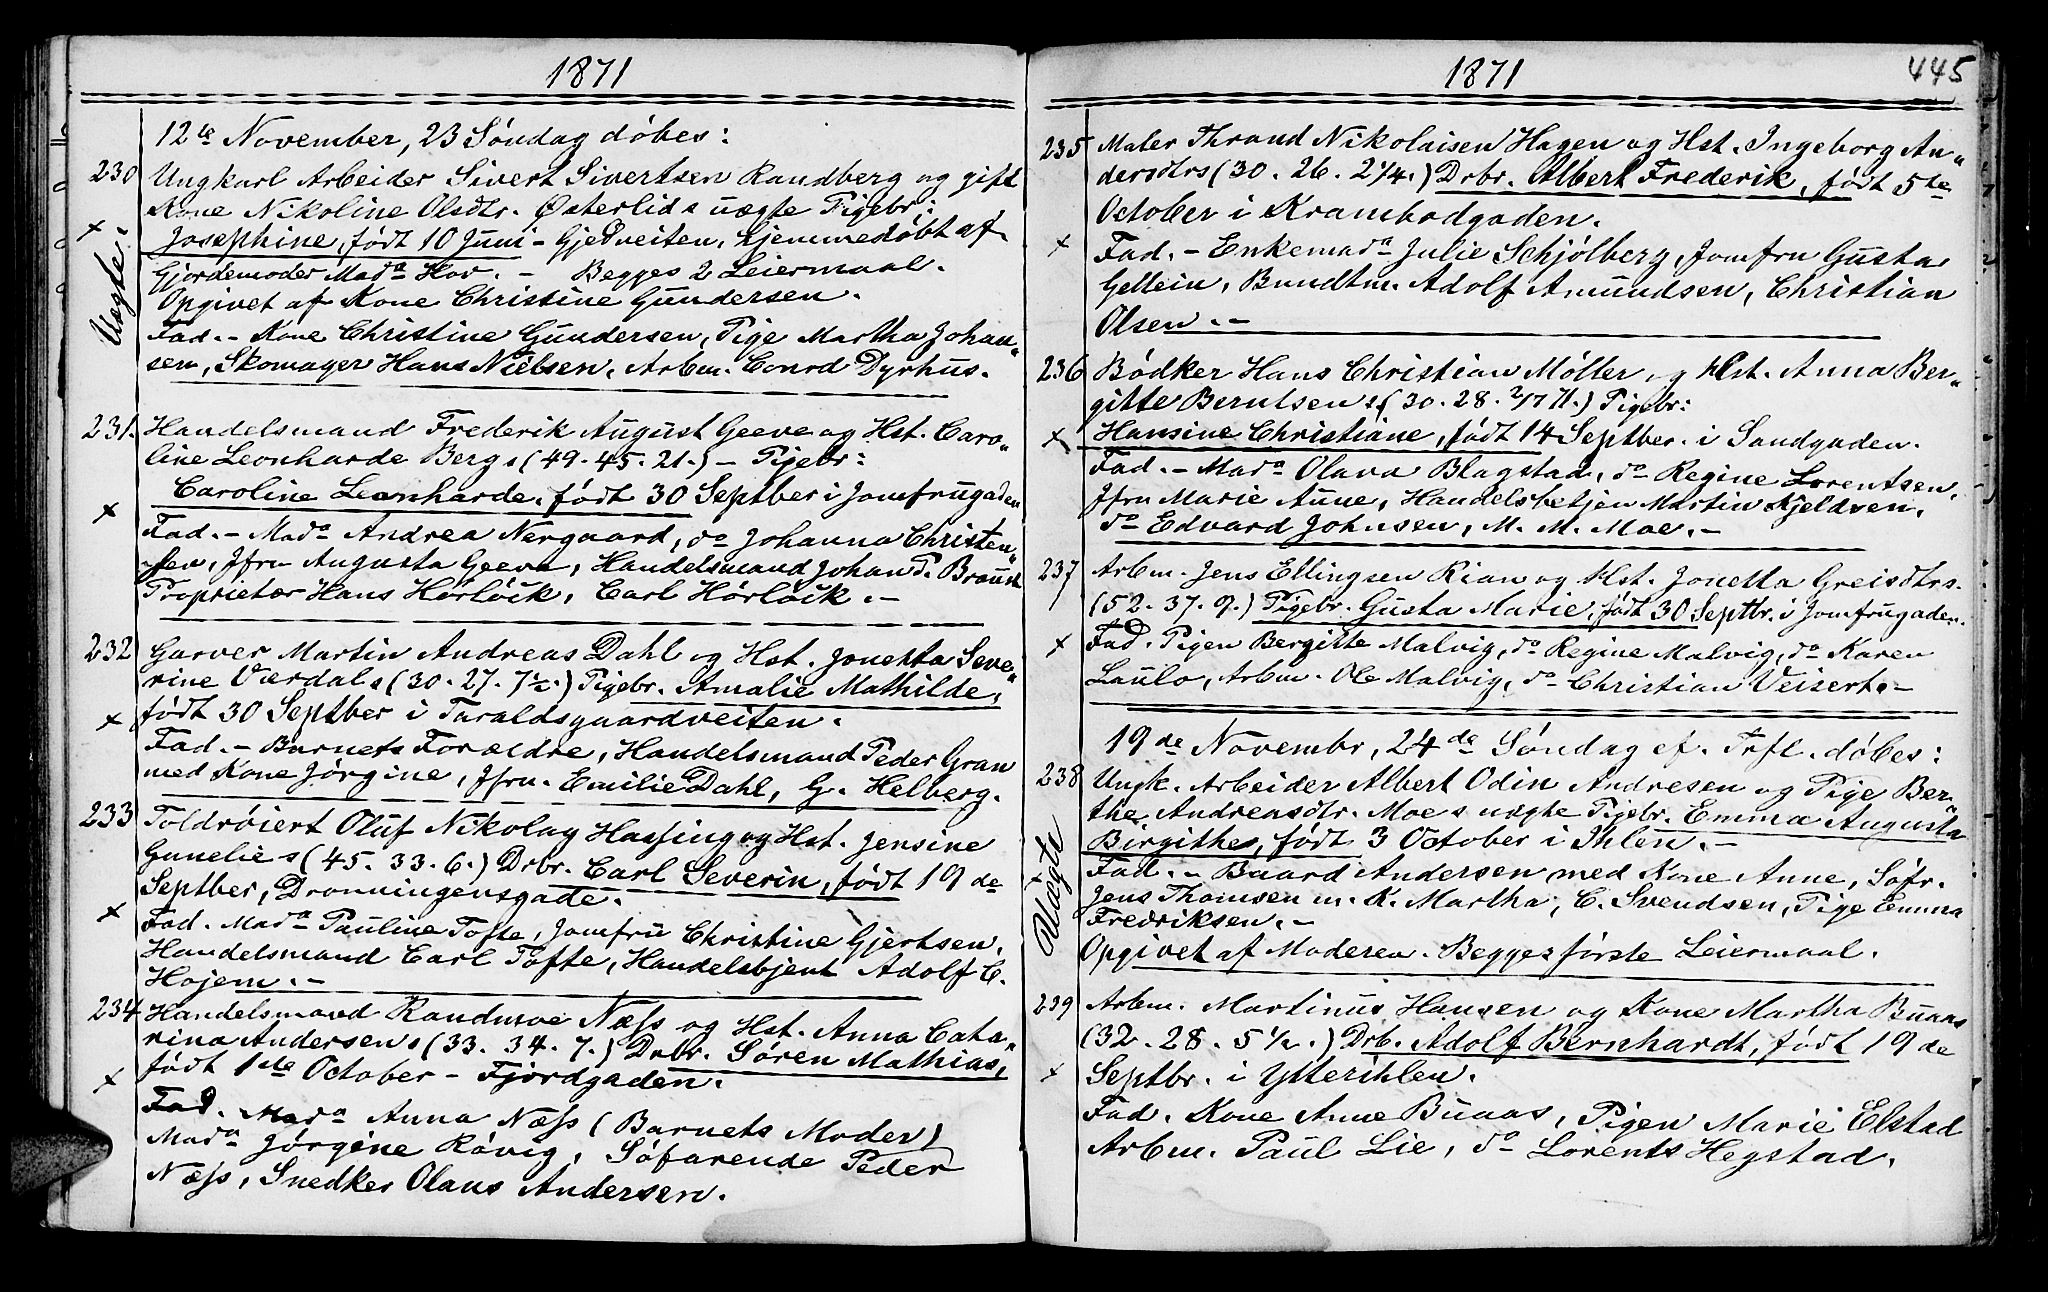 1871
12te November, 23 Søndag døbes:
230 Ungkarl Arbeider Sivert Sivertsen Randberg og gift
Kone Nikoline Olsdtr. Østerlids uægte Pigebr:
× Josephine, født 10 Juni - Gjedveiten, hjemmedøbt af
Uægte. Gjordemoder Mada Hov. - Begges 2 Leiermaal.
Opgivet af Kone Christine Gundersen.
Fad. - Kone Christine Gundersen, Pige Martha Johan„
sen, Skomager Hans Nielsen, Arbm. Conrd Dyrhus.
231. Handelsmand Frederik August Geeve og Hst. Caro„
line Leonharde Bergs (49. 45. 21.) - Pigebr:
Caroline Leonharde, født 30 Septber i Jomfrugaden
× Fad. - Mada Andrea Nergaard, do Johanna Christen„
sen, Jfru Augusta Geeve, Handelsmand Johan P. Braun
Proprietær Hans Hørløck, Carl Hørløck. -
232 Garver Martin Andreas Dahl og Hst. Jonetta Seve„
rine Værdals (30. 27. 7½.) Pigebr. Amalie Mathilde,
× født 30 Septber i Taraldsgaardveiten.
Fad. - Barnets Forældre, Handelsmand Peder Gran
med Kone Jørgine, Jfru. Emilie Dahl, G. Helberg.
233 Toldrøiert Oluf Nikolay Hassing og Hst. Jensine
Gunelies (45. 33. 6.) Drbr. Carl Severin, født 19de
Septber, Dronningensgade.
× Fad. Mada Pauline Tofte, Jomfru Christine Gjertsen,
Handelsmand Carl Tofte, Handelsbjent Adolf C.
Hojem. -
234 Handelsmand Randmoe Næss og Hst. Anna Catha„
rina Andersens (33. 34. 7.) Drbr. Søren Mathias,
født 1ste October - Fjordgaden.
× Fad. Mada Anna Næss (Barnets Moder)
Mada Jørgine Røvig, Søfarende Peder
Næss, Snedker Olaus Andersen.
1871
445
235 Maler Thrand Nikolaisen Hagen og Hst. Ingeborg An„
dersdtrs (30. 26. 2¼.) Drbr. Albert Frederik, født 5te
October i Krambodgaden.
× Fad. - Enkemada Julie Schjølberg, Jomfru Gusta
Gellein, Bundtm. Adolf Amundsen, Christian
Olsen. -
236 Bødker Hans Christian Møller og Hst. Anna Ber„
gitte Berntsens (30. 28. 2/7 71.) Pigebr:
× Hansine Christiane, født 14 Septber. i Sandgaden.
Fad. - Mada Olava Blagstad, do Regine Lorentsen,
Jfru Marie Aune, Handelsbetjen Martin Kjeldsen,
do Edvard Johnsen, M. M. Moe. -
237 Arbm. Jens Ellingsen Rian og Hst. Jonetta Greisdtrs.
(52. 37. 9.) Pigebr. Gusta Marie, født 30 Septbr. i Jomfrugaden.
× Fad. Pigen Bergitte Malvig, do Regine Malvig, do Karen
Laulo, Arbm. Ole Malvig, do Christian Veisert. -
19de Novembr, 24de Søndag ef. Trfl. døbes:
238 Ungk. Arbeider Albert Odin Andresen og Pige Ber„
the Andreasdtr. Moes uægte Pigebr. Emma Augusta
Birgithe, født 3 October i Ihlen. -
× Uægte Fad. - Baard Andersen med Kone Anne, Søfr.
Jens Thomsen m. K. Martha, C. Svendsen, Pige Emma
Fredriksen. -
Opgivet af Moderen. Begges første Leiermaal.
239 Arbm. Martinus Hansen og Kone Martha Buaas
(32. 28. 5½.) Drb. Adolf Bernhardt, født 19de
× Septbr. i Ytterihlen.
Fad. Kone Anne Buaas, Pigen Marie Elstad
Arbm. Paul Lie, do Lorents Hegstad.